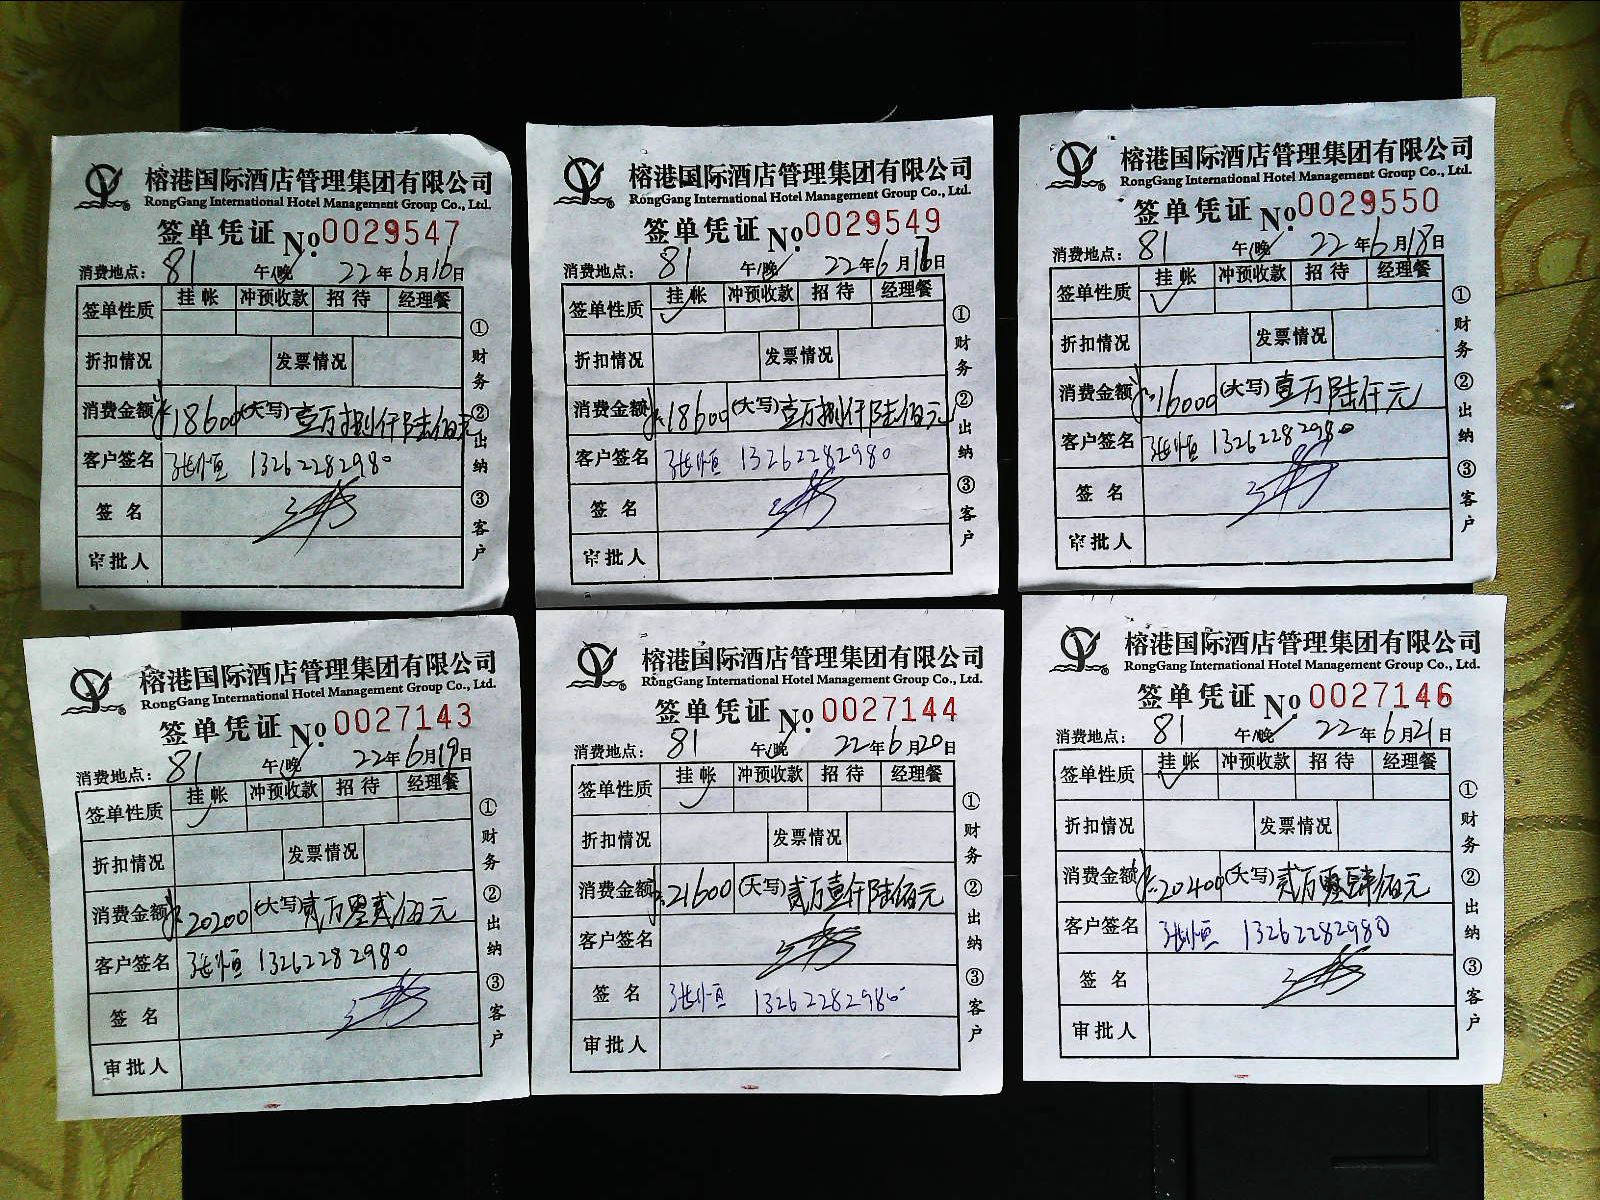 榕港国际酒店管理集团有限公司
RongGang International Hotel Management Group Co., Ltd.
签单凭证 No.0029547
消费地点: 81 午/晚 22年6月16日
签单性质 挂帐 冲预收款 招待 经理餐
折扣情况 发票情况
消费金额 ¥18600 (大写) 壹万捌仟陆佰元
客户签名 张恒 13262282980
签名
审批人
①财务 ②出纳 ③客户
榕港国际酒店管理集团有限公司
RongGang International Hotel Management Group Co., Ltd.
签单凭证 No.0029549
消费地点: 81 午/晚 22年6月17日
签单性质 挂帐 冲预收款 招待 经理餐
折扣情况 发票情况
消费金额 ¥18600 (大写) 壹万捌仟陆佰元
客户签名 张恒 13262282980
签名
审批人
①财务 ②出纳 ③客户
榕港国际酒店管理集团有限公司
RongGang International Hotel Management Group Co., Ltd.
签单凭证 No.0029550
消费地点: 81 午/晚 22年6月18日
签单性质 挂帐 冲预收款 招待 经理餐
折扣情况 发票情况
消费金额 ¥16000 (大写) 壹万陆仟元
客户签名 张恒 13262282980
签名
审批人
①财务 ②出纳 ③客户
榕港国际酒店管理集团有限公司
RongGang International Hotel Management Group Co., Ltd.
签单凭证 No.0027143
消费地点: 81 午/晚 22年6月19日
签单性质 挂帐 冲预收款 招待 经理餐
折扣情况 发票情况
消费金额 ¥20200 (大写) 贰万零贰佰元
客户签名 张恒 13262282980
签名
审批人
①财务 ②出纳 ③客户
榕港国际酒店管理集团有限公司
RongGang International Hotel Management Group Co., Ltd.
签单凭证 No.0027144
消费地点: 81 午/晚 22年6月20日
签单性质 挂帐 冲预收款 招待 经理餐
折扣情况 发票情况
消费金额 ¥21600 (大写) 贰万壹仟陆佰元
客户签名
签名 张恒 13262282980
审批人
①财务 ②出纳 ③客户
榕港国际酒店管理集团有限公司
RongGang International Hotel Management Group Co., Ltd.
签单凭证 No.0027146
消费地点: 81 午/晚 22年6月21日
签单性质 挂帐 冲预收款 招待 经理餐
折扣情况 发票情况
消费金额 ¥20400 (大写) 贰万零肆佰元
客户签名 张恒 13262282980
签名
审批人
①财务 ②出纳 ③客户